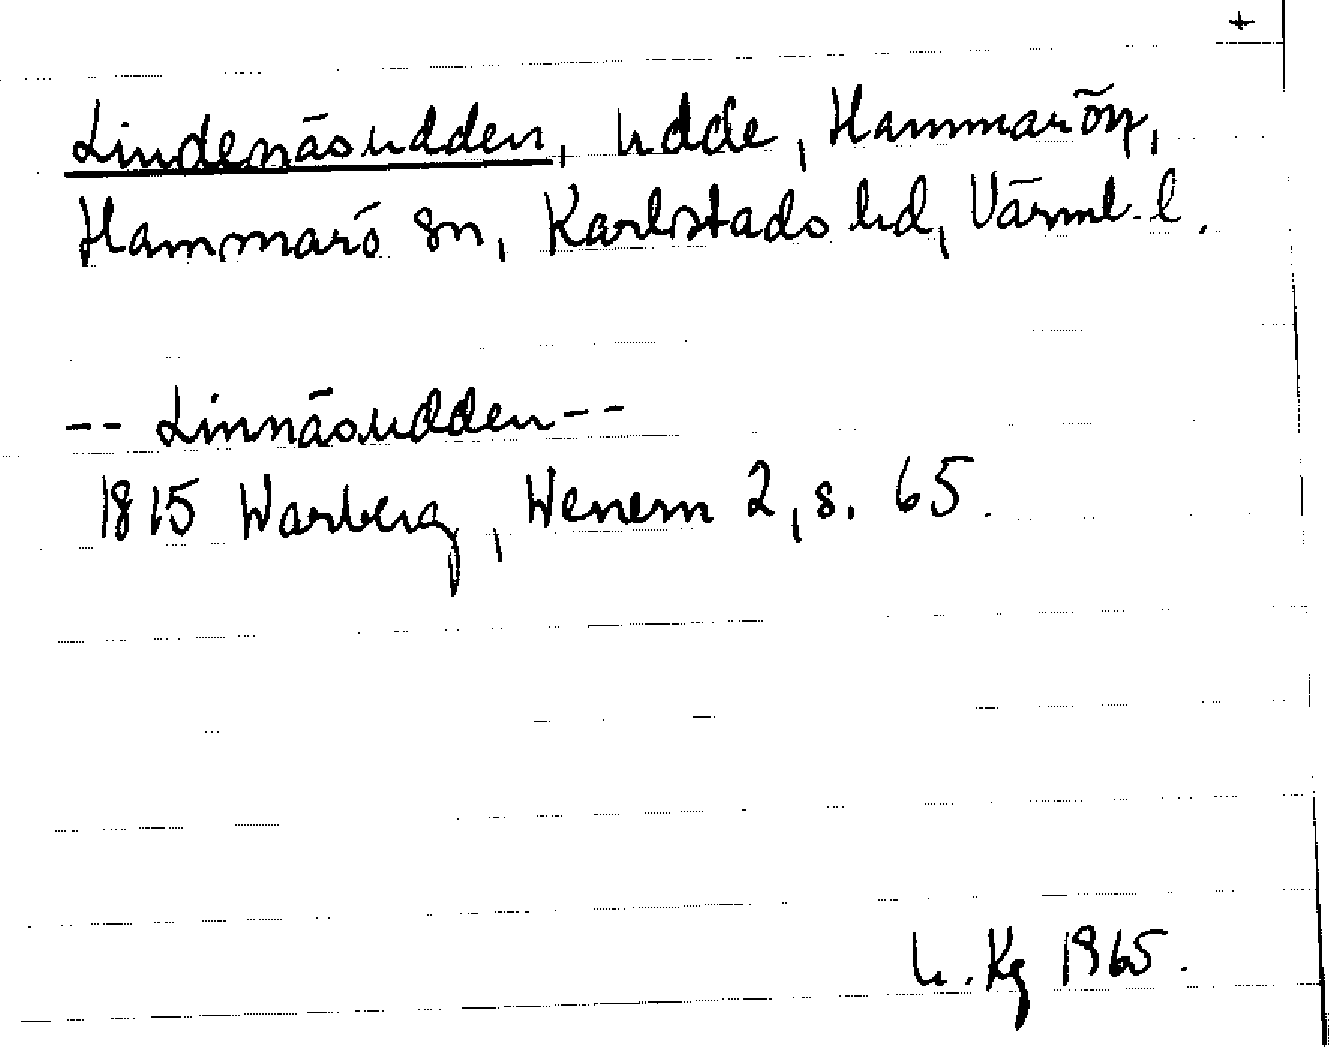 +
Lindenäsudden, udde, Hammarön,
Hammarö sn, Karlstads hd, Värml. l.
-- Linnäsudden --
1815 Warberg, Wenern 2, s. 65.
U. Kg 1965.